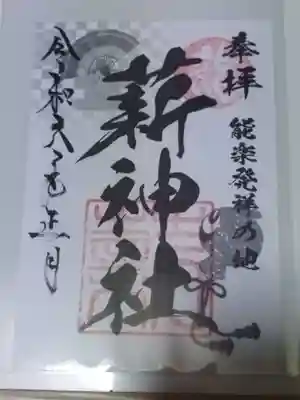 奉拝
能楽発祥乃地
薪神社
令和年正月